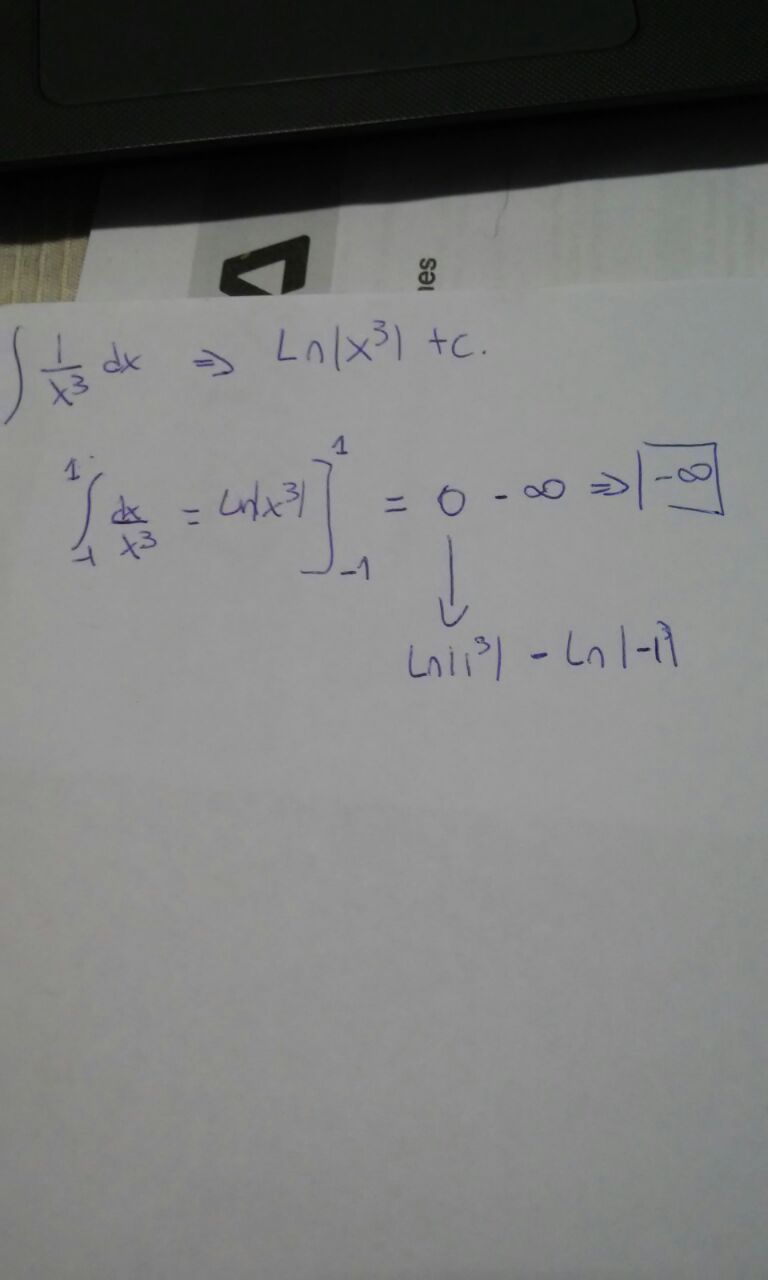 nes
∫ 1/x³ dx ⇒ Ln|x³| + c.
∫₋₁¹ dx/x³ = Ln|x³| ]₋₁¹ = 0 - ∞ ⇒ -∞
Ln|1³| - Ln|-1³|